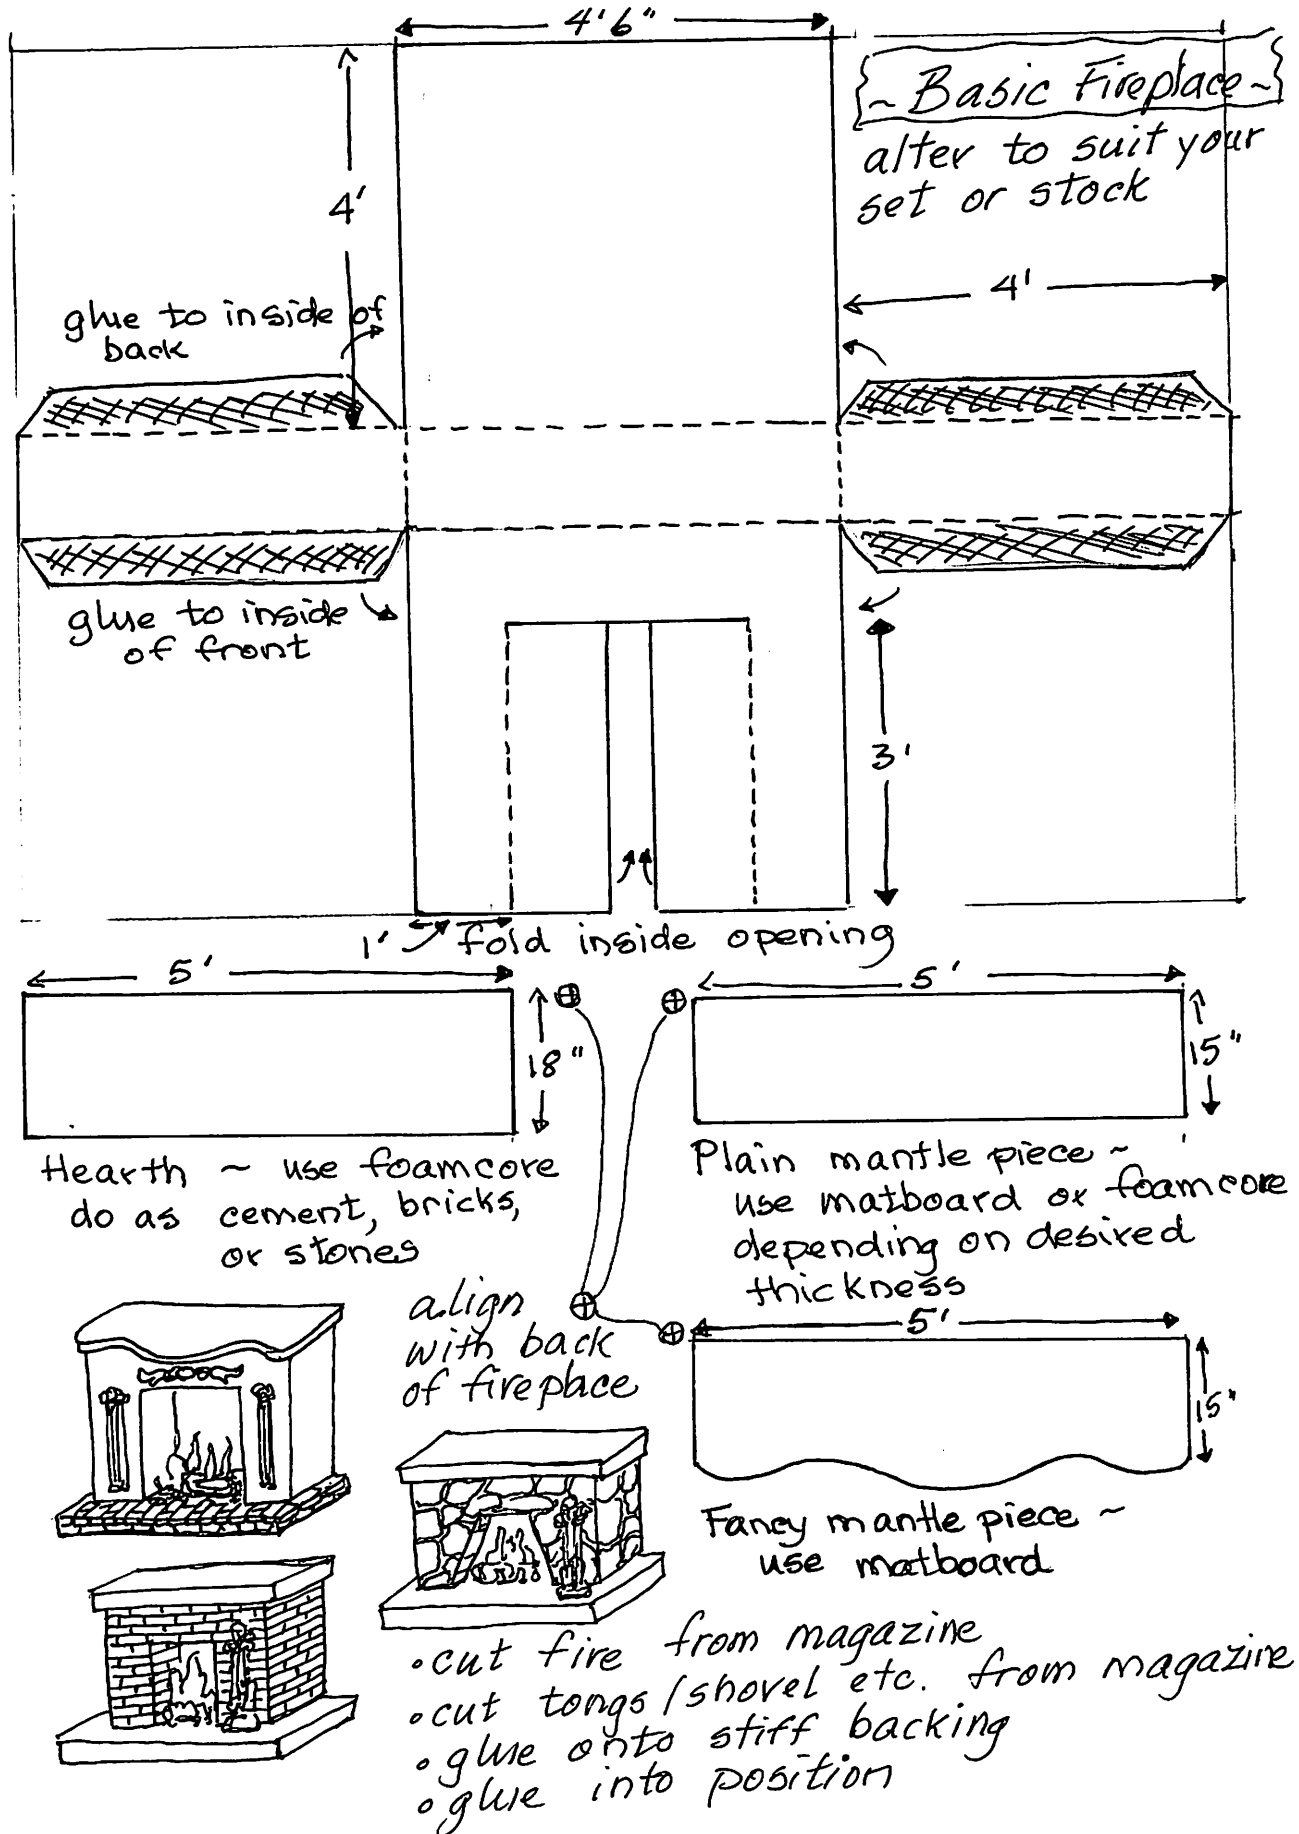 4'6"
~ Basic Fireplace ~
alter to suit your
set or stock
4'
4'
glue to inside of
back
glue to inside
of front
3'
1'
fold inside opening
5'
18"
Hearth ~ use foamcore
do as cement, bricks,
or stones
5'
15"
Plain mantle piece ~
use matboard or foamcore
depending on desired
thickness
align
with back
of fireplace
5'
15"
Fancy mantle piece ~
use matboard
• cut fire from magazine
• cut tongs / shovel etc. from magazine
• glue onto stiff backing
• glue into position